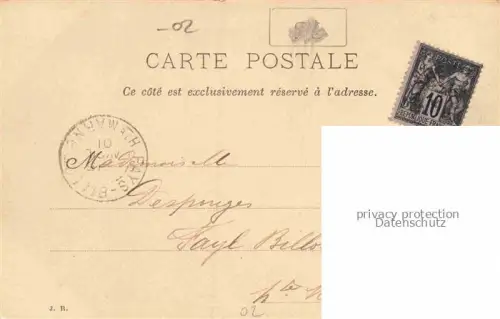 02
CARTE POSTALE
Ce côté est exclusivement réservé à l'adresse.
10
Mademoiselle
Desponges
privacy protection
Datenschutz
Fayl Billo
hte
J. B.
02